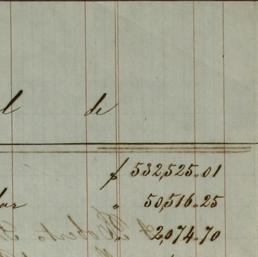 l de
$ 532,525.01
lar " 50,516.25
2,074.70